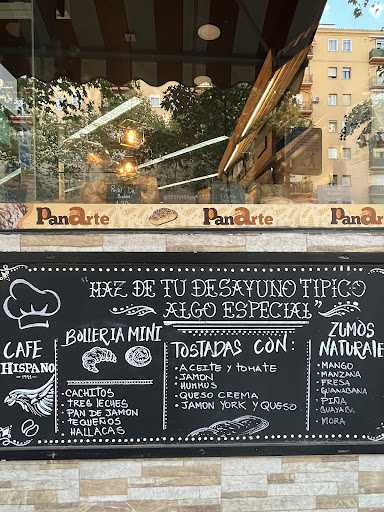 PanArte
PanArte
PanAr
"HAZ DE TU DESAYUNO TIPICO
ALGO ESPECIAL"
CAFE
HISPANO
BOLLERIA MINI
• CACHITOS
• TRES LECHES
• PAN DE JAMON
• TEQUEÑOS
HALLACAS
TOSTADAS CON:
• ACEITE Y TOMATE
• JAMON
• HUMMUS
• QUESO CREMA
• JAMON YORK Y QUESO
ZUMOS
NATURALE
• MANGO
• MANZANA
• FRESA
• GUANABANA
• PIÑA
• GUAYABA
• MORA